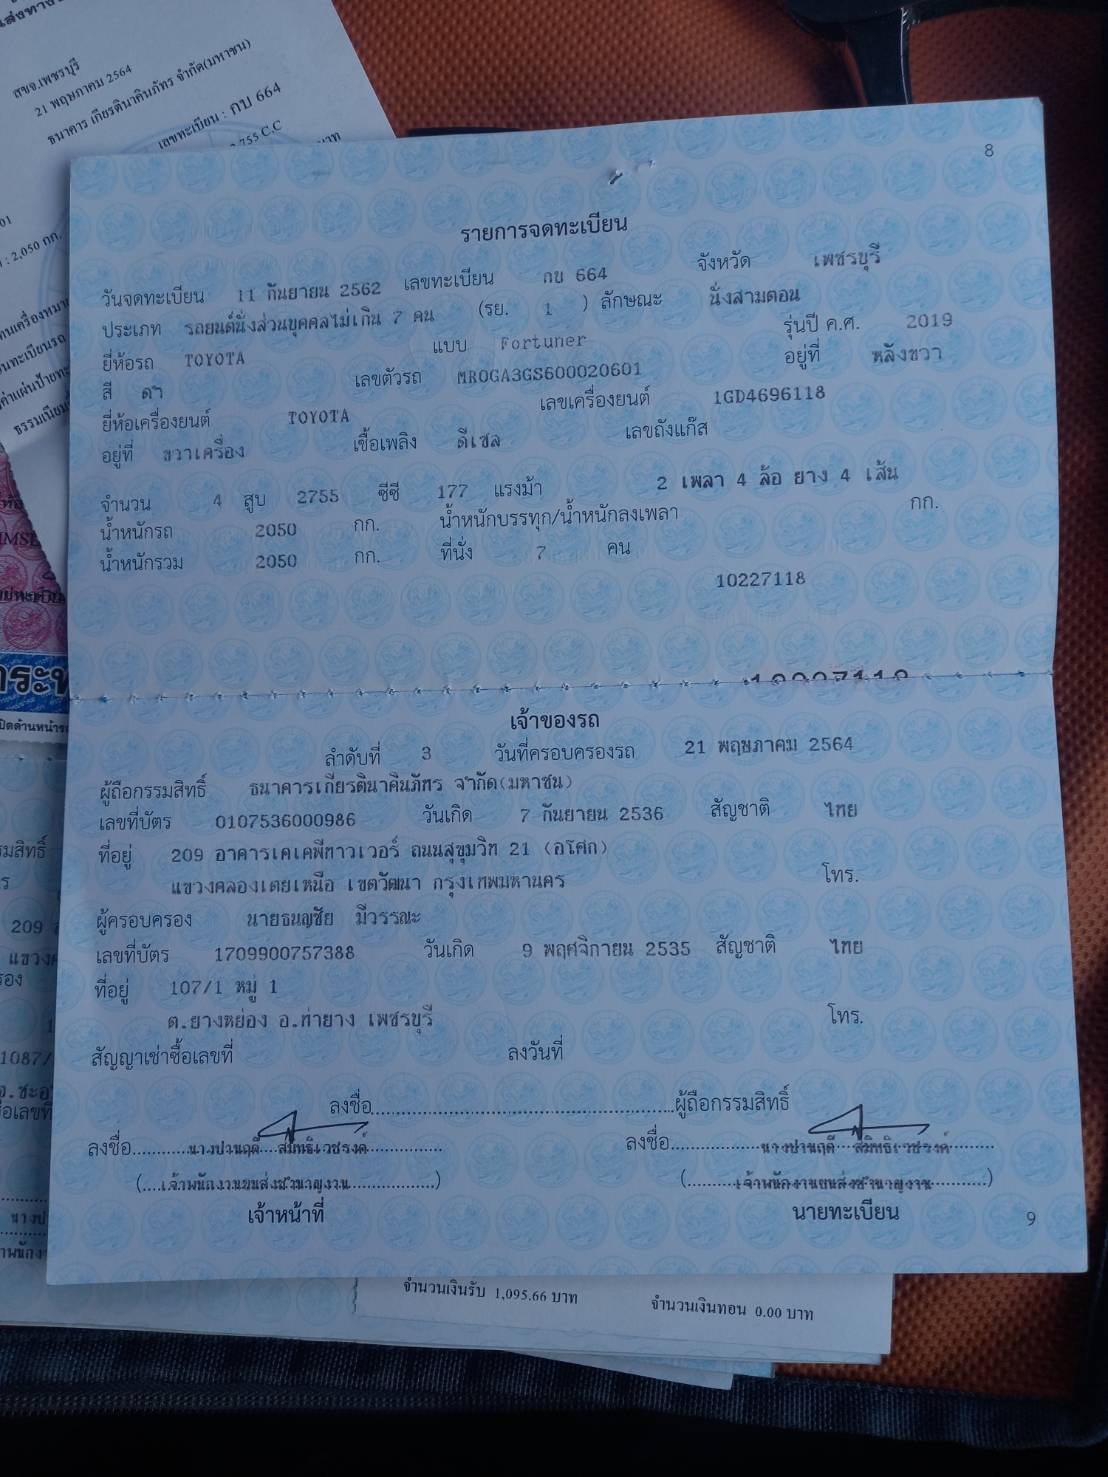 สขจ.เพชรบุรี
21 พฤษภาคม 2564
ธนาคาร เกียรตินาคินภัทร จำกัด(มหาชน)
เลขทะเบียน : กบ 664
: 2,050 กก.
8
รายการจดทะเบียน
วันจดทะเบียน 11 กันยายน 2562 เลขทะเบียน กบ 664 จังหวัด เพชรบุรี
ประเภท รถยนต์นั่งส่วนบุคคลไม่เกิน 7 คน (รย. 1 ) ลักษณะ นั่งสามตอน
ยี่ห้อรถ TOYOTA แบบ Fortuner รุ่นปี ค.ศ. 2019
สี ดำ เลขตัวรถ MR0GA3GS600020601 อยู่ที่ หลังขวา
ยี่ห้อเครื่องยนต์ TOYOTA เลขเครื่องยนต์ 1GD4696118
อยู่ที่ ขวาเครื่อง เชื้อเพลิง ดีเซล เลขถังแก๊ส
จำนวน 4 สูบ 2755 ซีซี 177 แรงม้า 2 เพลา 4 ล้อ ยาง 4 เส้น
น้ำหนักรถ 2050 กก. น้ำหนักบรรทุก/น้ำหนักลงเพลา กก.
น้ำหนักรวม 2050 กก. ที่นั่ง 7 คน
10227118
เจ้าของรถ
ลำดับที่ 3 วันที่ครอบครองรถ 21 พฤษภาคม 2564
ผู้ถือกรรมสิทธิ์ ธนาคารเกียรตินาคินภัทร จำกัด(มหาชน)
เลขที่บัตร 0107536000986 วันเกิด 7 กันยายน 2536 สัญชาติ ไทย
ที่อยู่ 209 อาคารเคเคพีทาวเวอร์ ถนนสุขุมวิท 21 (อโศก)
แขวงคลองเตยเหนือ เขตวัฒนา กรุงเทพมหานคร โทร.
ผู้ครอบครอง นายธนญชัย มีวรรณะ
เลขที่บัตร 1709900757388 วันเกิด 9 พฤศจิกายน 2535 สัญชาติ ไทย
ที่อยู่ 107/1 หมู่ 1
ต.ยางหย่อง อ.ท่ายาง เพชรบุรี โทร.
สัญญาเช่าซื้อเลขที่ ลงวันที่
ลงชื่อ ผู้ถือกรรมสิทธิ์
ลงชื่อ นางปานฤดี สมิทธิเวชรงค์ ลงชื่อ นางปานฤดี สมิทธิเวชรงค์
(เจ้าพนักงานขนส่งชำนาญงาน) (เจ้าพนักงานขนส่งชำนาญงาน)
เจ้าหน้าที่ นายทะเบียน
9
จำนวนเงินรับ 1,095.66 บาท จำนวนเงินทอน 0.00 บาท